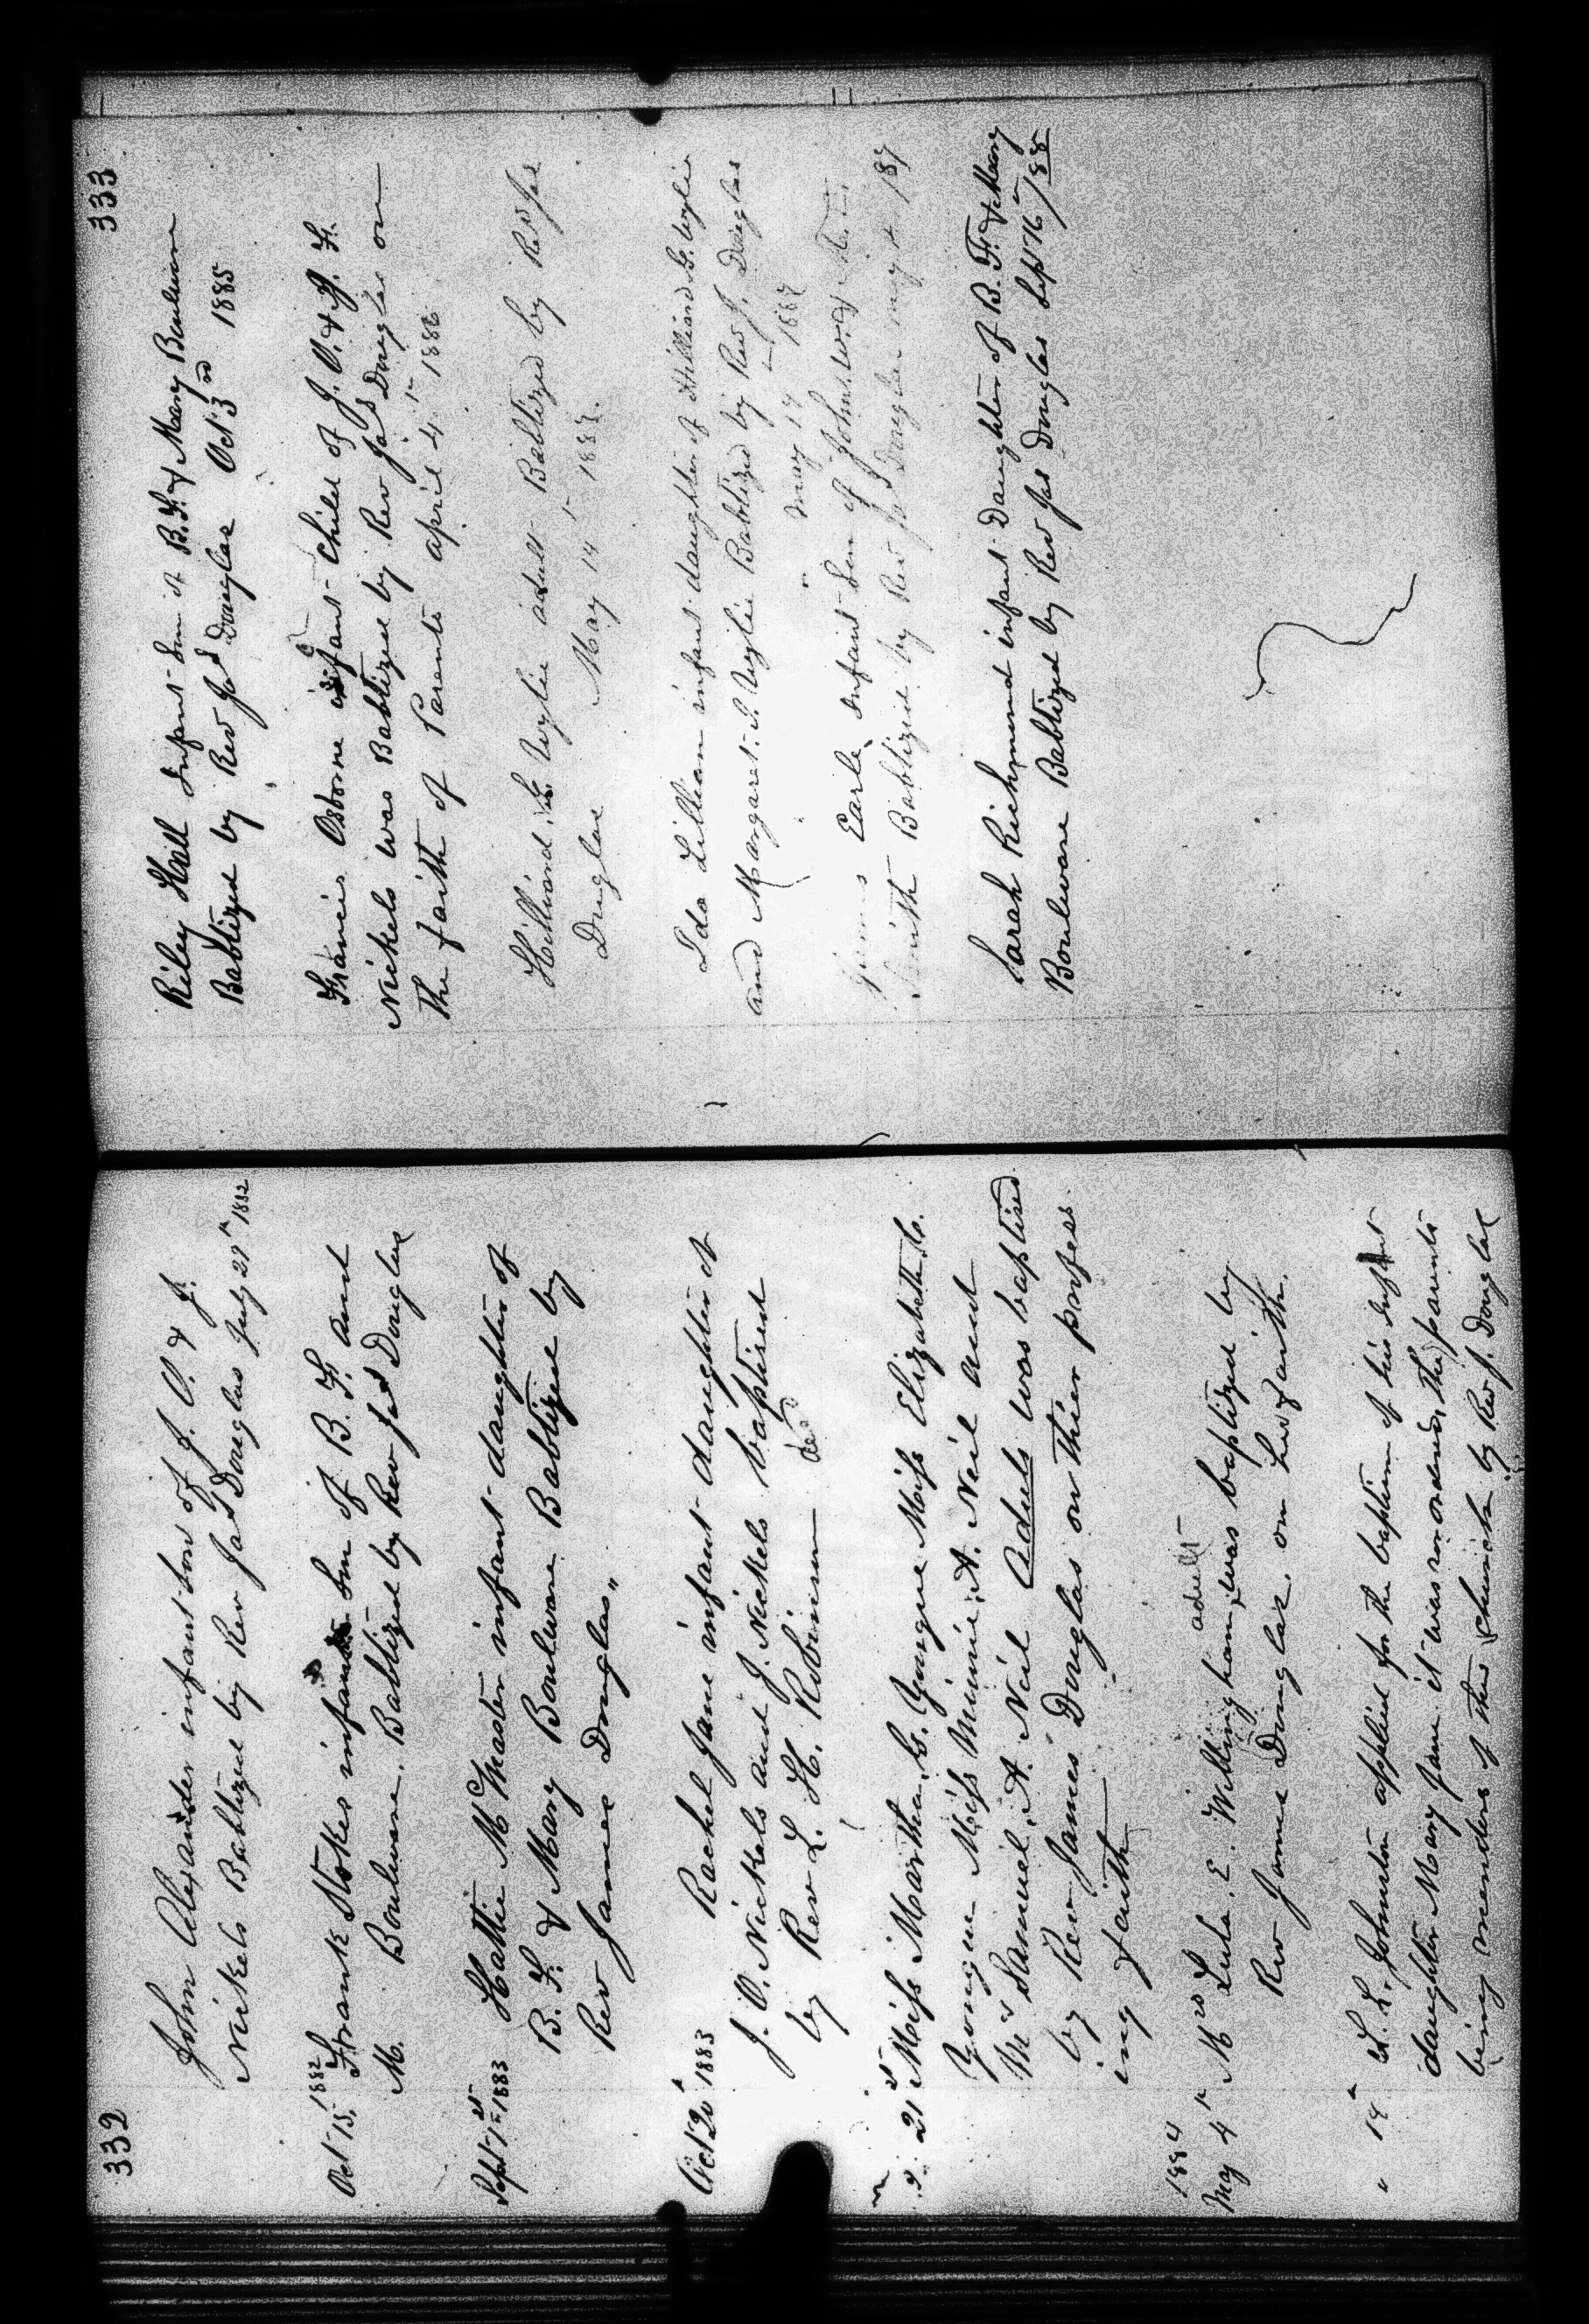 332
John Alexander infant son of J. O. & J.
Nickels Babtized by Rev Jas Douglas July 29th 1882
Oct 15, 1882 Frank Stokes infant Son of B. F. and
M. Boulware. Babtized by Rev Jas Douglas
Sept 1st 1883 Hattie McMaster infant daughter of
B. F. & Mary Boulware Babtized by
Rev James Douglas"
Oct 20th 1883 Rachel Jane infant daughter of
J. O. Nickels and J. Nickels baptised
by Rev L. H. Robinson
21st Miss Martha. C. Yongue Miss Elizabeth
Yongue Miss Minnie. A. Neil and
Mr Samuel. A. Neil Adults was baptised
by Rev James Douglas on their profess
ing faith
1884
May 4th Mrs Lula. E. Willingham, adult was baptized by
Rev James Douglas. on her faith.
" 19th Johnston applied for the baptism of his infant
daughter Mary Jane it was ordered, the parents
being members of this church by Rev J. Douglas
333
Riley Hall infant Son of B. F. & Mary Boulware
Babtized by Rev Jas Douglas Oct 3rd 1885
Francis Osborne infant Child of J. O. & J. F.
Nickels was Babtized by Rev Jas Douglas on
the faith of Parents april 4 1886
Hilliard. G Wylie adult Babtized by Rev Jas
Douglas May 14 188
Ida Lillian infant daughter of Hilliard G. Wylie
and Margaret. I. Wylie Babtized by Rev J. Douglas
May 14 1887
Earle infant Son of John. W. &
Smith Babtized by Rev Jas Douglas May
Sarah Richmond infant Daughter of B. F. & Mary
Boulware Babtized by Rev Jas Douglas Sept 16th/88